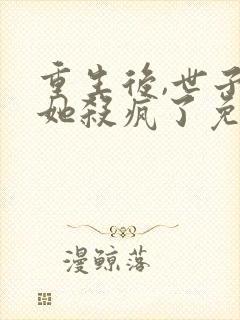 重生後,世子
她殺瘋了免
漫鲸落